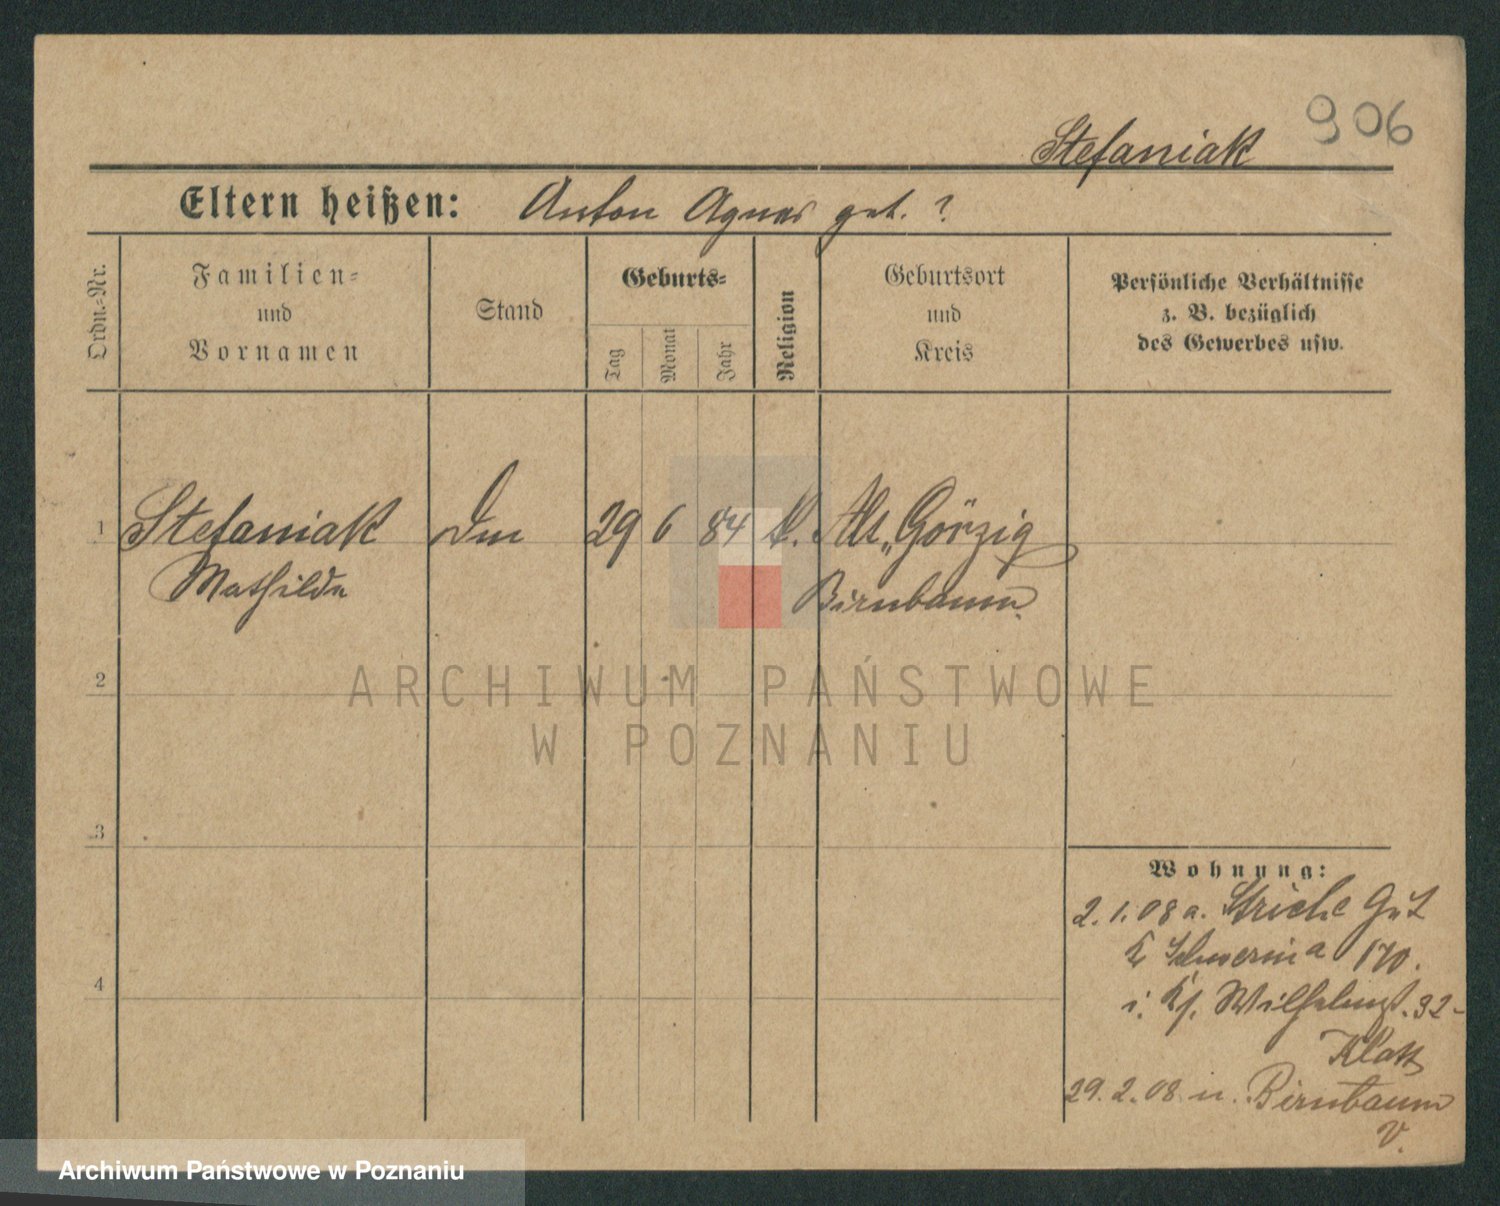 906
Stefaniak
Eltern heißen: Anton Agnes geb. ?
Ordn.-Nr.
Familien-
und
Vornamen
Stand
Geburts-
Tag
Monat
Jahr
Religion
Geburtsort
und
Kreis
Persönliche Verhältnisse
z. B. bezüglich
des Gewerbes usw.
1 Stefaniak 29 6 84 k. Alt-Görzig
Mathilde Birnbaum
2
ARCHIWUM PAŃSTWOWE
W POZNANIU
3
4
Wohnung:
2.1.08 a. Striche Gut
K Schwerin a 170.
i. Wilhelmst. 32-
Klatt
29.2.08 n. Birnbaum
V.
Archiwum Państwowe w Poznaniu